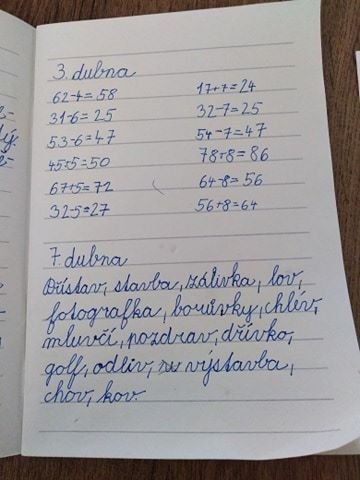 3. dubna
62-4=58 17+7=24
31-6=25 32-7=25
53-6=47 54-7=47
45+5=50 78+8=86
67+5=72 64-8=56
32-5=27 56+8=64
7. dubna
Přístav, stavba, zálivka, lov,
fotografka, borůvky, chlív,
mluvčí, pozdrav, dřívko,
golf, odliv, výstavba,
chov, kov.